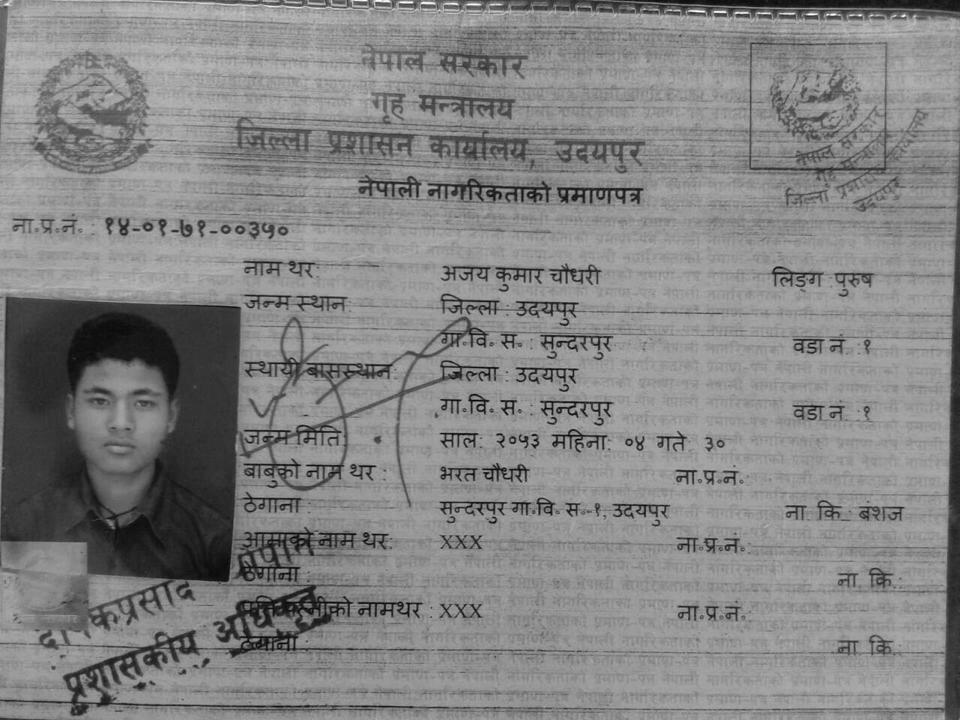 नेपाल सरकार
गृह मन्त्रालय
जिल्ला प्रशासन कार्यालय, उदयपुर
नेपाली नागरिकताको प्रमाणपत्र
नेपाल सरकार
गृह मन्त्रालय
जिल्ला प्रशासन कार्यालय
उदयपुर
ना॰प्र॰नं॰ : १४-०१-७१-००३५०
नाम थर: अजय कुमार चौधरी लिङ्ग पुरुष
जन्म स्थान: जिल्ला : उदयपुर
गा॰वि॰ स॰ : सुन्दरपुर वडा नं॰ :१
स्थायी बासस्थान: जिल्ला : उदयपुर
गा॰वि॰ स॰ : सुन्दरपुर वडा नं॰ :१
जन्म मिति: साल: २०५३ महिना: ०४ गते: ३०
बाबुको नाम थर : भरत चौधरी ना॰प्र॰नं॰
ठेगाना : सुन्दरपुर गा॰वि॰ स॰-१, उदयपुर ना॰ कि॰: बंशज
आमाको नाम थर: XXX ना॰प्र॰नं॰:
ठेगाना : ना॰ कि॰:
नामथर : XXX ना॰प्र॰नं॰
ठेगाना : ना॰ कि॰:
प्रशासकीय अधिकृत